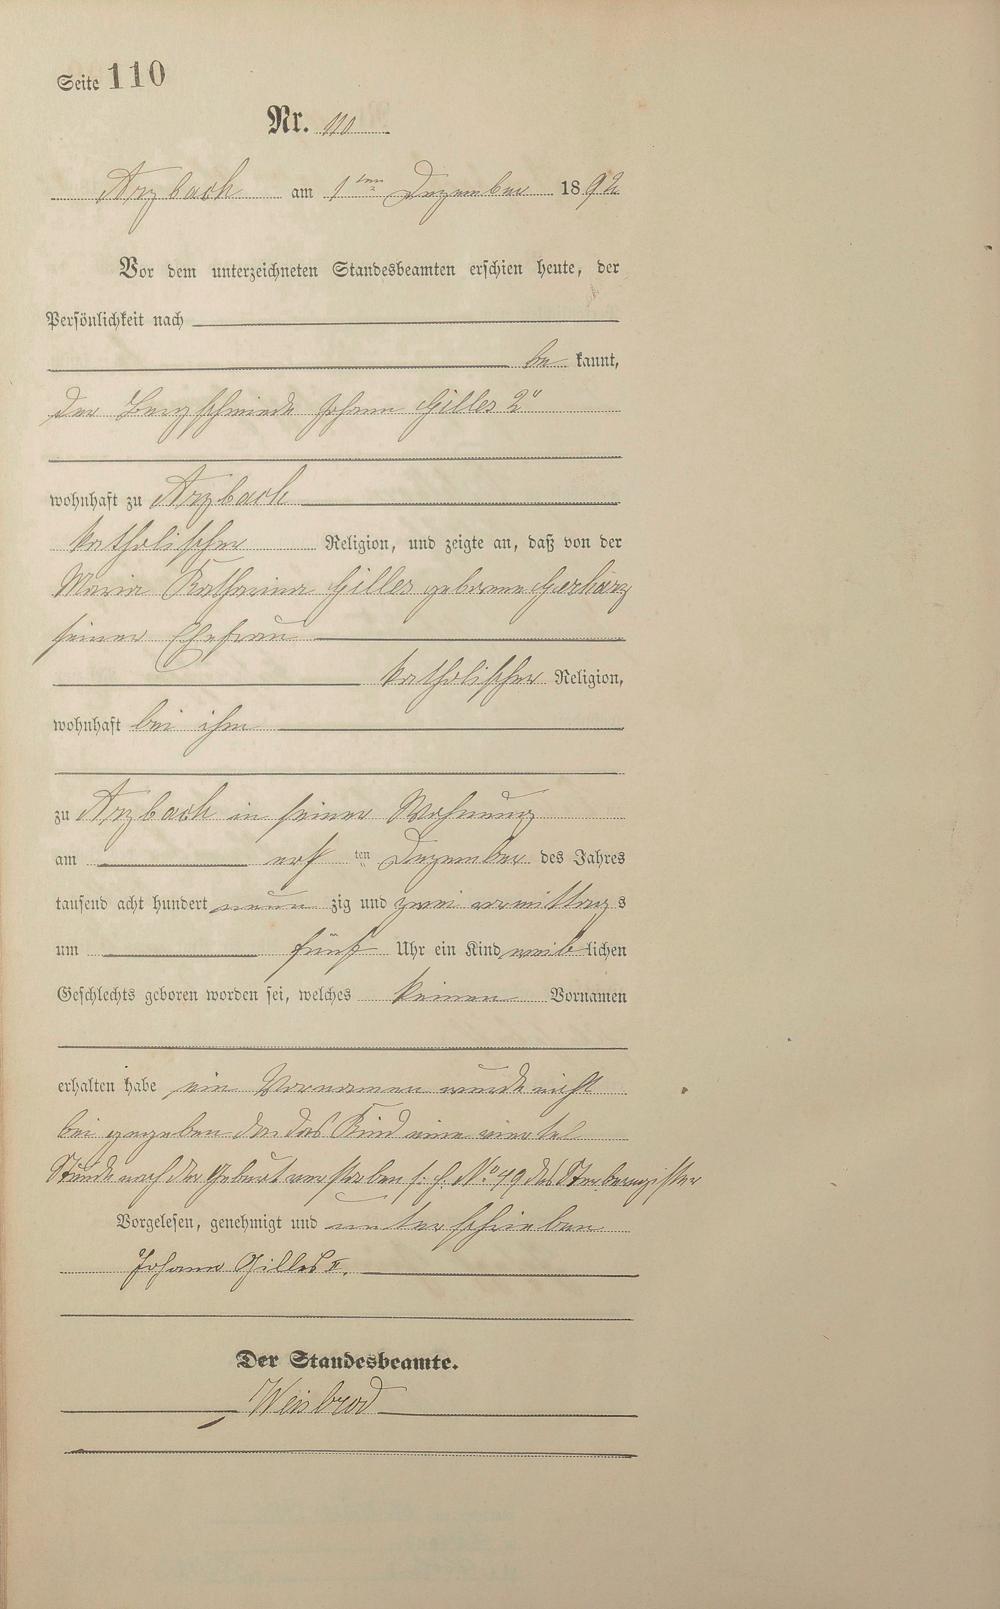 Seite 110
Nr. 110
Arzbach am 1ten Dezember 1892
Vor dem unterzeichneten Standesbeamten erschien heute, der
Persönlichkeit nach
be kannt,
der Bergschmiede Johann Gilles 2r
wohnhaft zu Arzbach
katholischer Religion, und zeigte an, daß von der
Maria Katharina Gilles geborene Gerharz
seiner Ehefrau
katholischer Religion,
wohnhaft bei ihm
zu Arzbach in seiner Wohnung
am erst ten Dezember des Jahres
tausend acht hundert neun zig und zwei vormittag s
um fünf Uhr ein Kind weib lichen
Geschlechts geboren worden sei, welches keinen Vornamen
erhalten habe ein Vornamen wurde nicht
bei gegeben da das Kind eine viertel
Stunde nach der Geburt verstorben s. h. No 49 des Sterberegister
Vorgelesen, genehmigt und unterschrieben
Johann Gilles II.
Der Standesbeamte.
Weisbrod